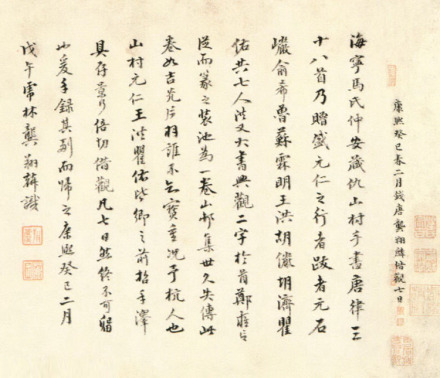 康熙癸巳春二月錢唐龔翔麟借觀七日
海寧馬氏仲安藏仇山村手書唐律三
十八首乃贈盛元仁之行者跋者元石
巖俞希魯蘇霖明王洪胡儼胡濟瞿
佑共七人洪又大書興觀二字於首鄭雍言
從而篆之裝池為一卷山邨集世久失傳此
卷如吉光片羽誰不知寶重況予杭人也
山村元仁王洪瞿佑皆鄉之前哲手澤
具存倍切借觀凡七日然終不可留
也爰手錄其副而歸之康熙癸巳二月
戊午虎林龔翔麟識